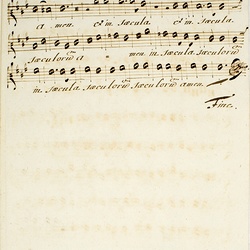 a men. et in sæcula. et in sæcula.
sæculorū a men in sæcula sæculorū
in sæcula sæculorū sæculorū amen.
Fine.